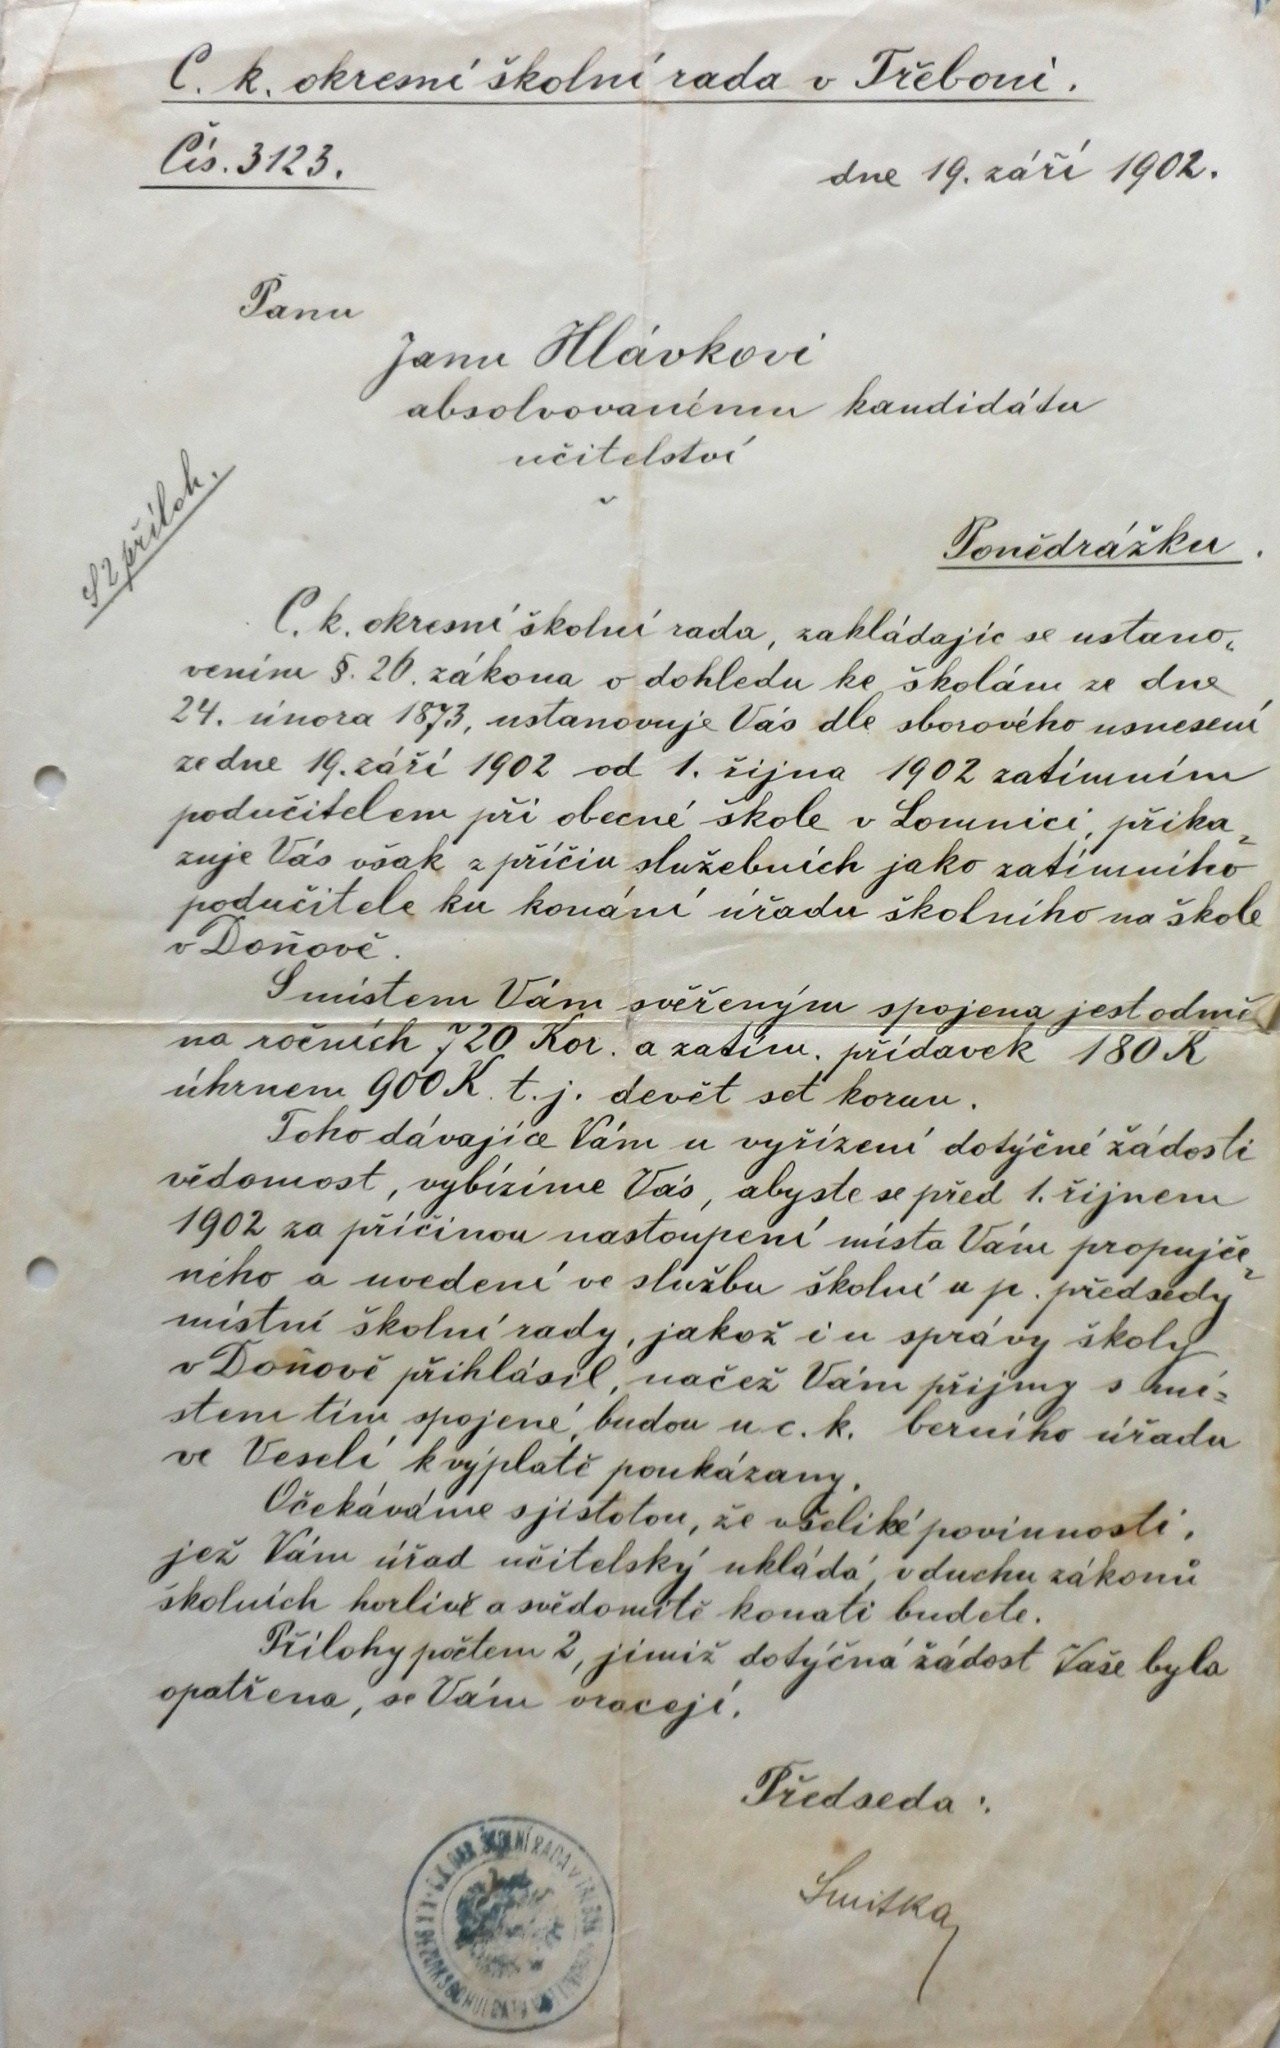 C. k. okresní školní rada v Třeboni.
Čís. 3123.
dne 19. září 1902.
Panu
Janu Hlávkovi
absolvovanému kandidátu
učitelství
Ponědrážku.
S 2 příloh.
C. k. okresní školní rada, zakládajíc se ustano-
vením §. 26. zákona o dohledu ke školám ze dne
24. února 1873, ustanovuje Vás dle sborového usnesení
ze dne 19. září 1902 od 1. října 1902 zatímním
podučitelem při obecné škole v Lomnici, přika-
zuje Vás však z příčin služebních jako zatímního
podučitele ku konání úřadu školního na škole
v Doňově.
S místem Vám svěřeným spojena jest odmě
na ročních 720 Kor. a zatím. přídavek 180 K
úhrnem 900 K. t. j. devět set korun.
Toho dávajíce Vám u vyřízení dotýčné žádosti
vědomost, vybízíme Vás, abyste se před 1. říjnem
1902 za příčinou nastoupení místa Vám propujče-
ného a uvedení ve službu školní u p. předsedy
místní školní rady, jakož i u správy školy
v Doňově přihlásil, načež Vám příjmy s mí-
stem tím spojené, budou u c. k. berního úřadu
ve Veselí k výplatě poukázany.
Očekáváme s jistotou, že všeliké povinnosti,
jež Vám úřad učitelský ukládá, v duchu zákonů
školních horlivě a svědomitě konati budete.
Přílohy počtem 2, jimiž dotýčná žádost Vaše byla
opatřena, se Vám vracejí.
Předseda:
Smitka